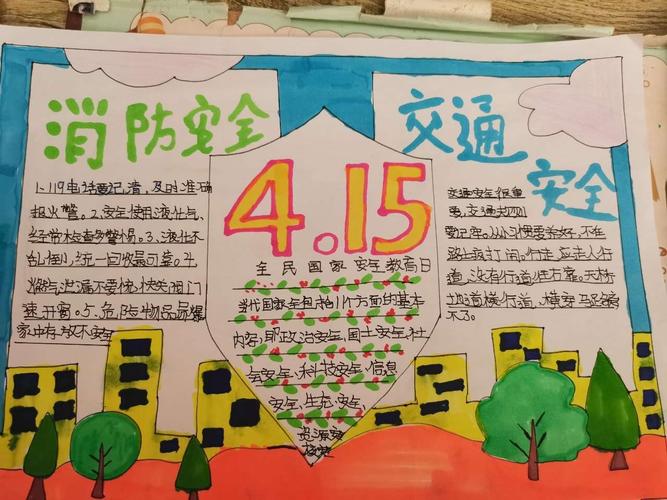 消防安全
1、119电话要记清，及时准确
报火警。2、安全使用液化气，
经常检查多警惕。3、液化不
乱倒，统一回收最可靠。4、
燃气泄漏不要慌，快关阀门
速开窗。5、危险物品易爆
家中存放不安全
4.15
全民国家安全教育日
当代国家安全包括11个方面的基本
内容，即政治安全、国土安全、社
会安全、科技安全、信息
安全、生态、安全、
资源安
核安
交通
安全
交通安全很重
要，交通规则
要记牢。从小习惯要养好，不在
路上追打闹。行走应走人行
道，没有行道往右靠。天桥
地道横行道，横穿马路
不了。